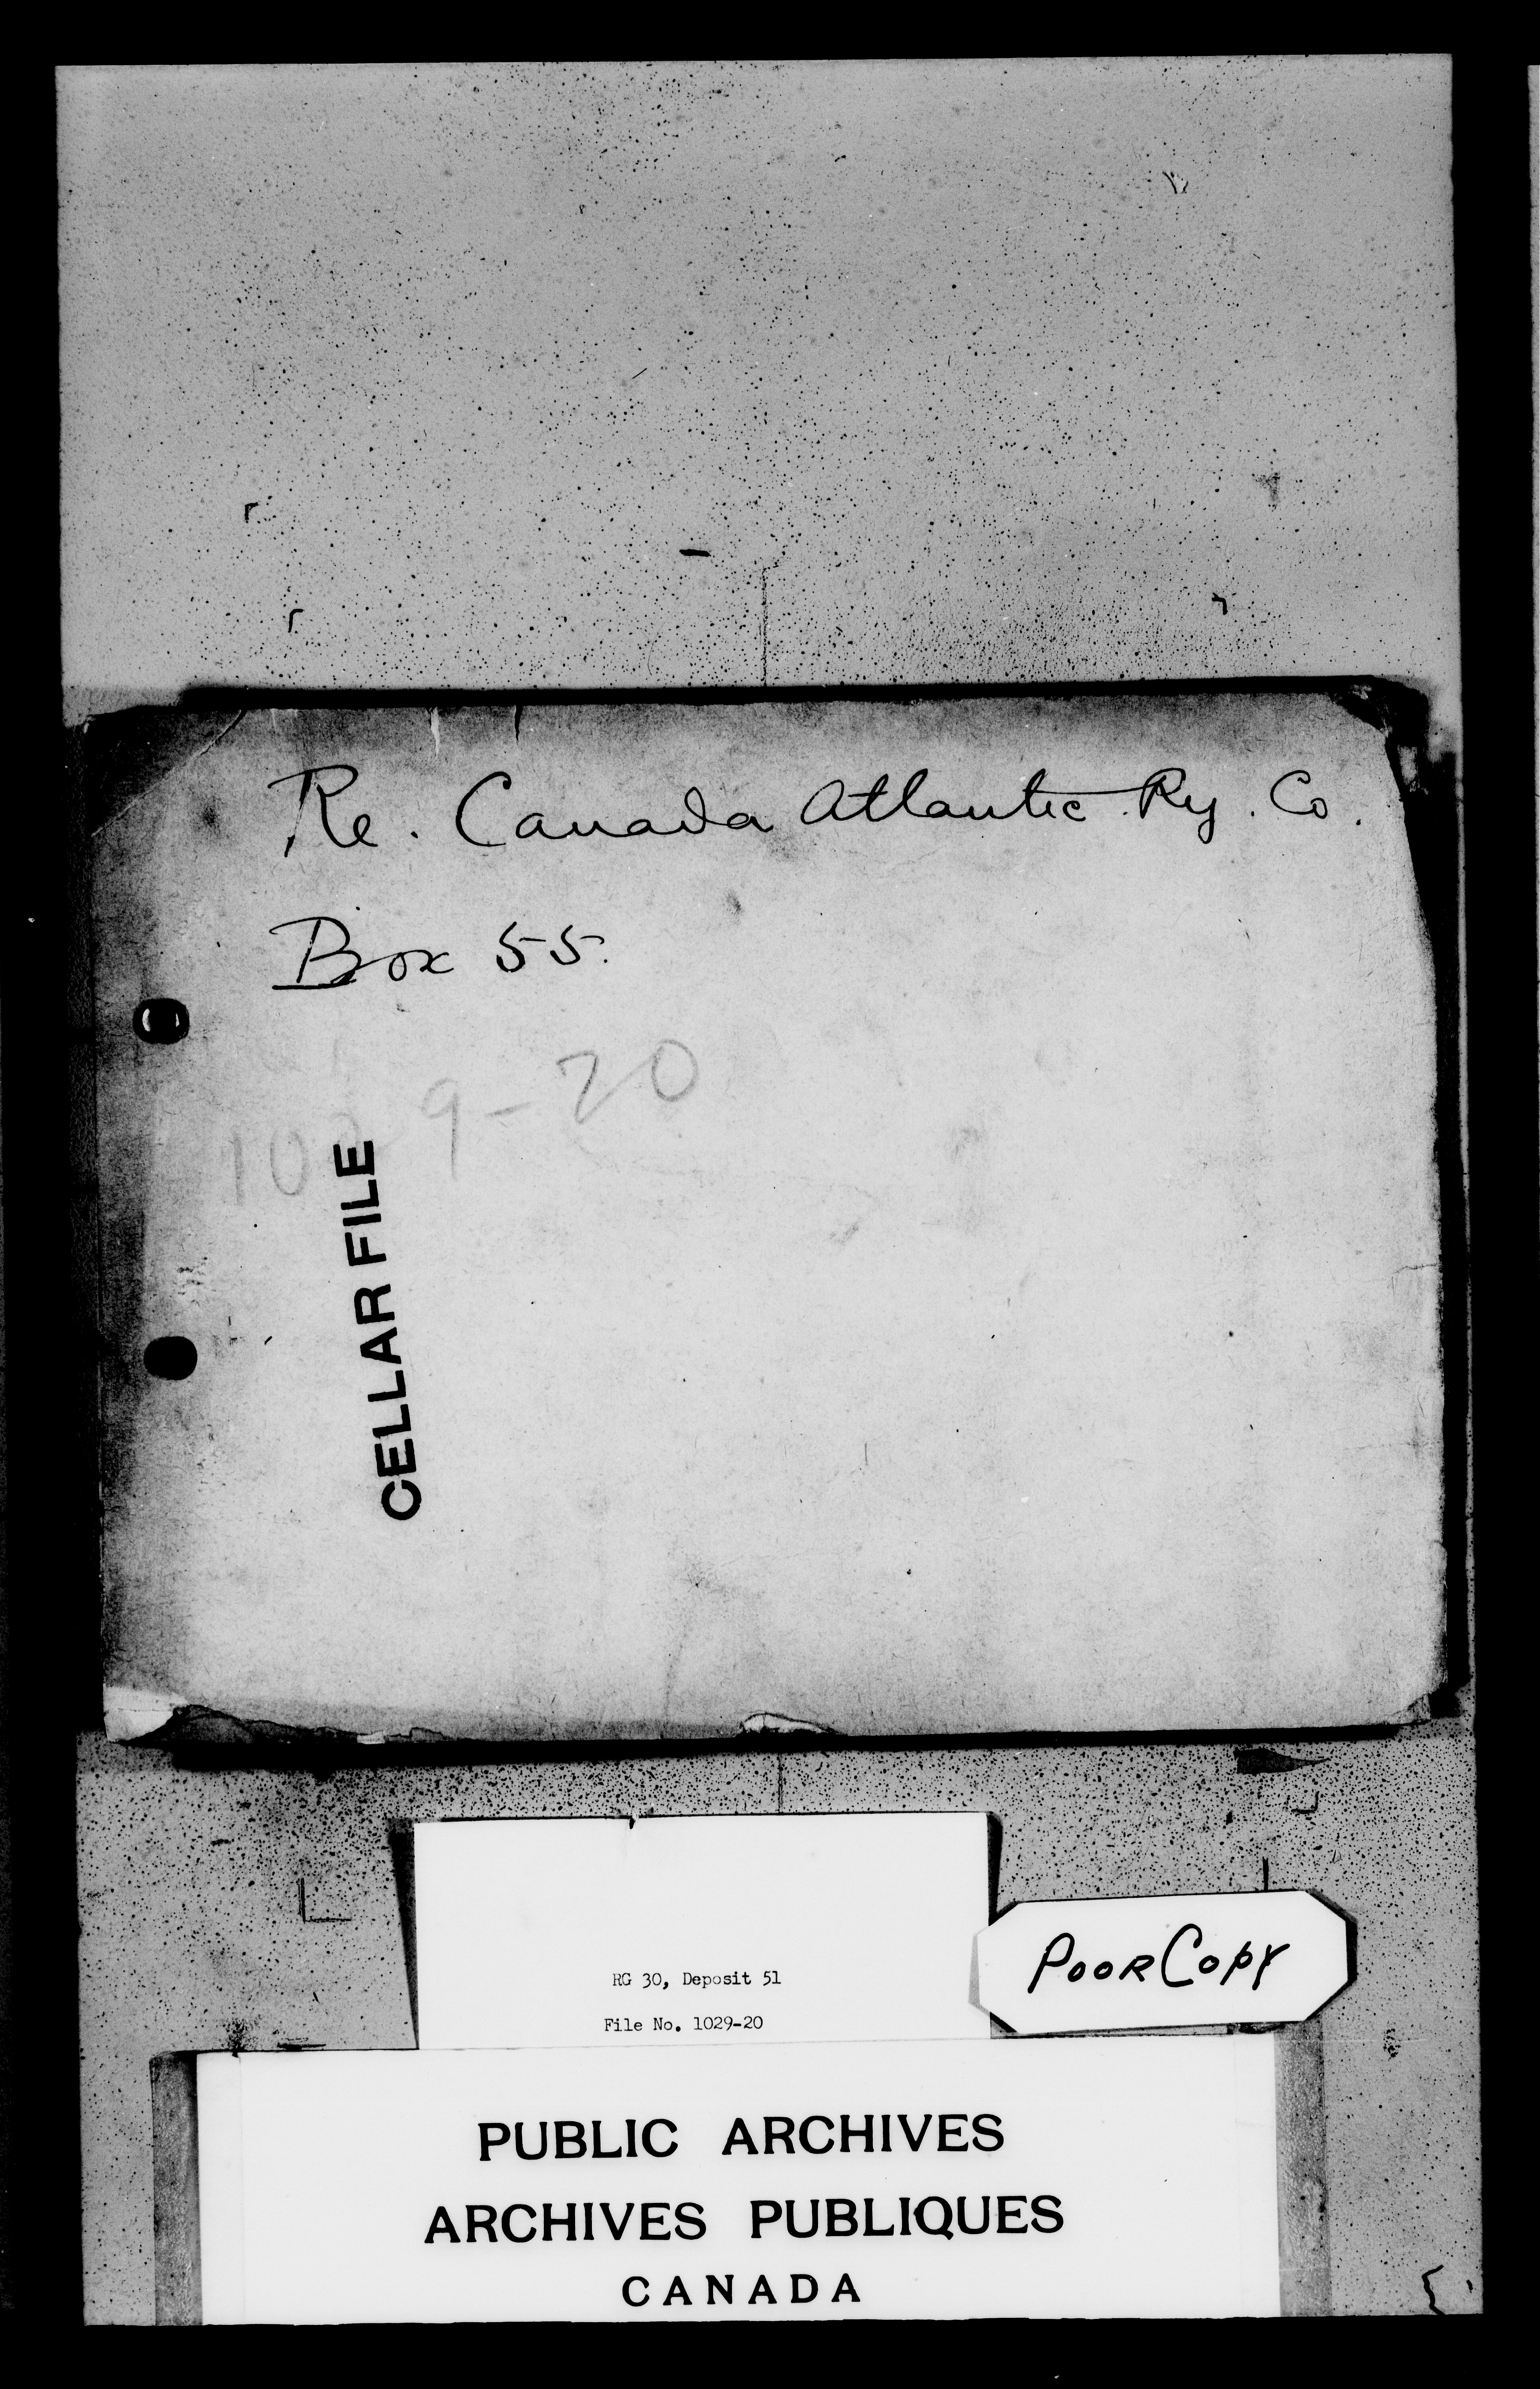 Re. Canada Atlantic Ry. Co.
Box 55.
1029-20
CELLAR FILE
RG 30, Deposit 51
File No. 1029-20
POOR COPY
PUBLIC ARCHIVES
ARCHIVES PUBLIQUES
CANADA